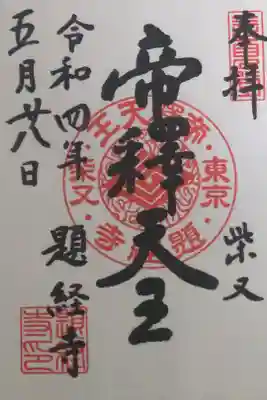 奉拝
柴又
帝釋天王
帝釋天王・東京・題経寺・柴又
令和四年
題経寺
五月廿八日